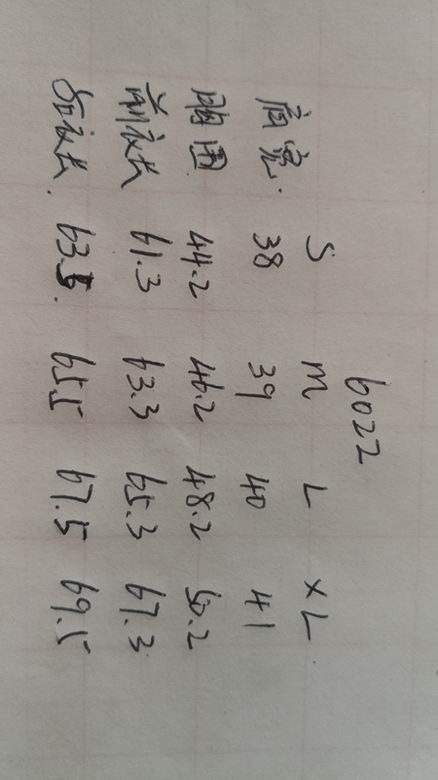 6022
S M L XL
肩宽. 38 39 40 41
胸围 44.2 46.2 48.2 50.2
前衣长 61.3 63.3 65.3 67.3
后衣长. 63.5. 65.5 67.5 69.5